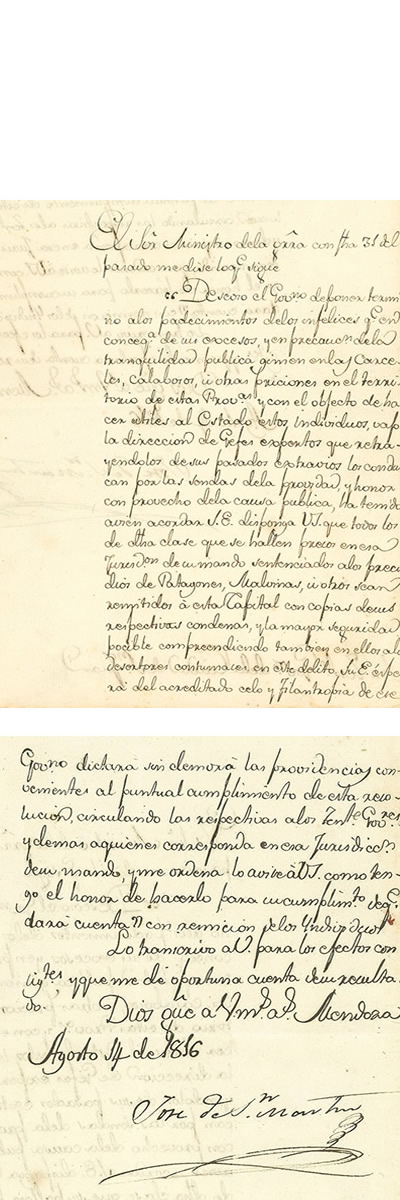 El Sôr Ministro dela grra con fha 31 del
pasado me dise loq.e sigue
"Deseoso el Gov.no deponer termi
no alos padecimientos delos infelices q.e en
conseq.a de sus excesos, y en precauc.n dela
tranquilidad publica gimen en las Carce-
les, calabosos, ú otras priciones en el terri-
torio de estas Prov.as y con el objecto de ha
cer utiles al Estado estos individuos, vajo
la direccion de Gefes expertos que retra-
yendolos de sus pasados extravios los condu
can por las sendas dela providad, y honor
con provecho dela causa publica, ha tenido
avien acordar S.E. disponga VS. que todos los
de dha clase que se hallen presos en esa
Jurisd.on de su mando sentenciados alos presi
dios de Patagones, Malvinas, ú otros sean
remitidos à esta Capital con copias desus
respectivas condenas, y la mayor seguridad
posible comprendiendo tambien en ellos alos
desertores contumaces en este delito. Su E. espe
ra del acreditado celo y filantropia de ese
Gov.no dictará sin demora las providencias con-
venientes al puntual cumplimiento de esta reso-
lucion, circulando las respectivas alos Ten.tes Gov.res
y demas aquienes corresponda en esa Jurisdicc.n
desu mando, y me ordena lo avise àVS. como ten-
go el honor de hacerlo para su cumplim.to deq.e
dará cuenta" con remicion delos Individuos
Lo transcrivo aV. para los efectos con
sig.tes y que me dé oportuna cuenta desu resulta
do. Dios gûe aV. m.s a.s Mendoza
Agosto 14 de 1816
Jose de S.n Martin